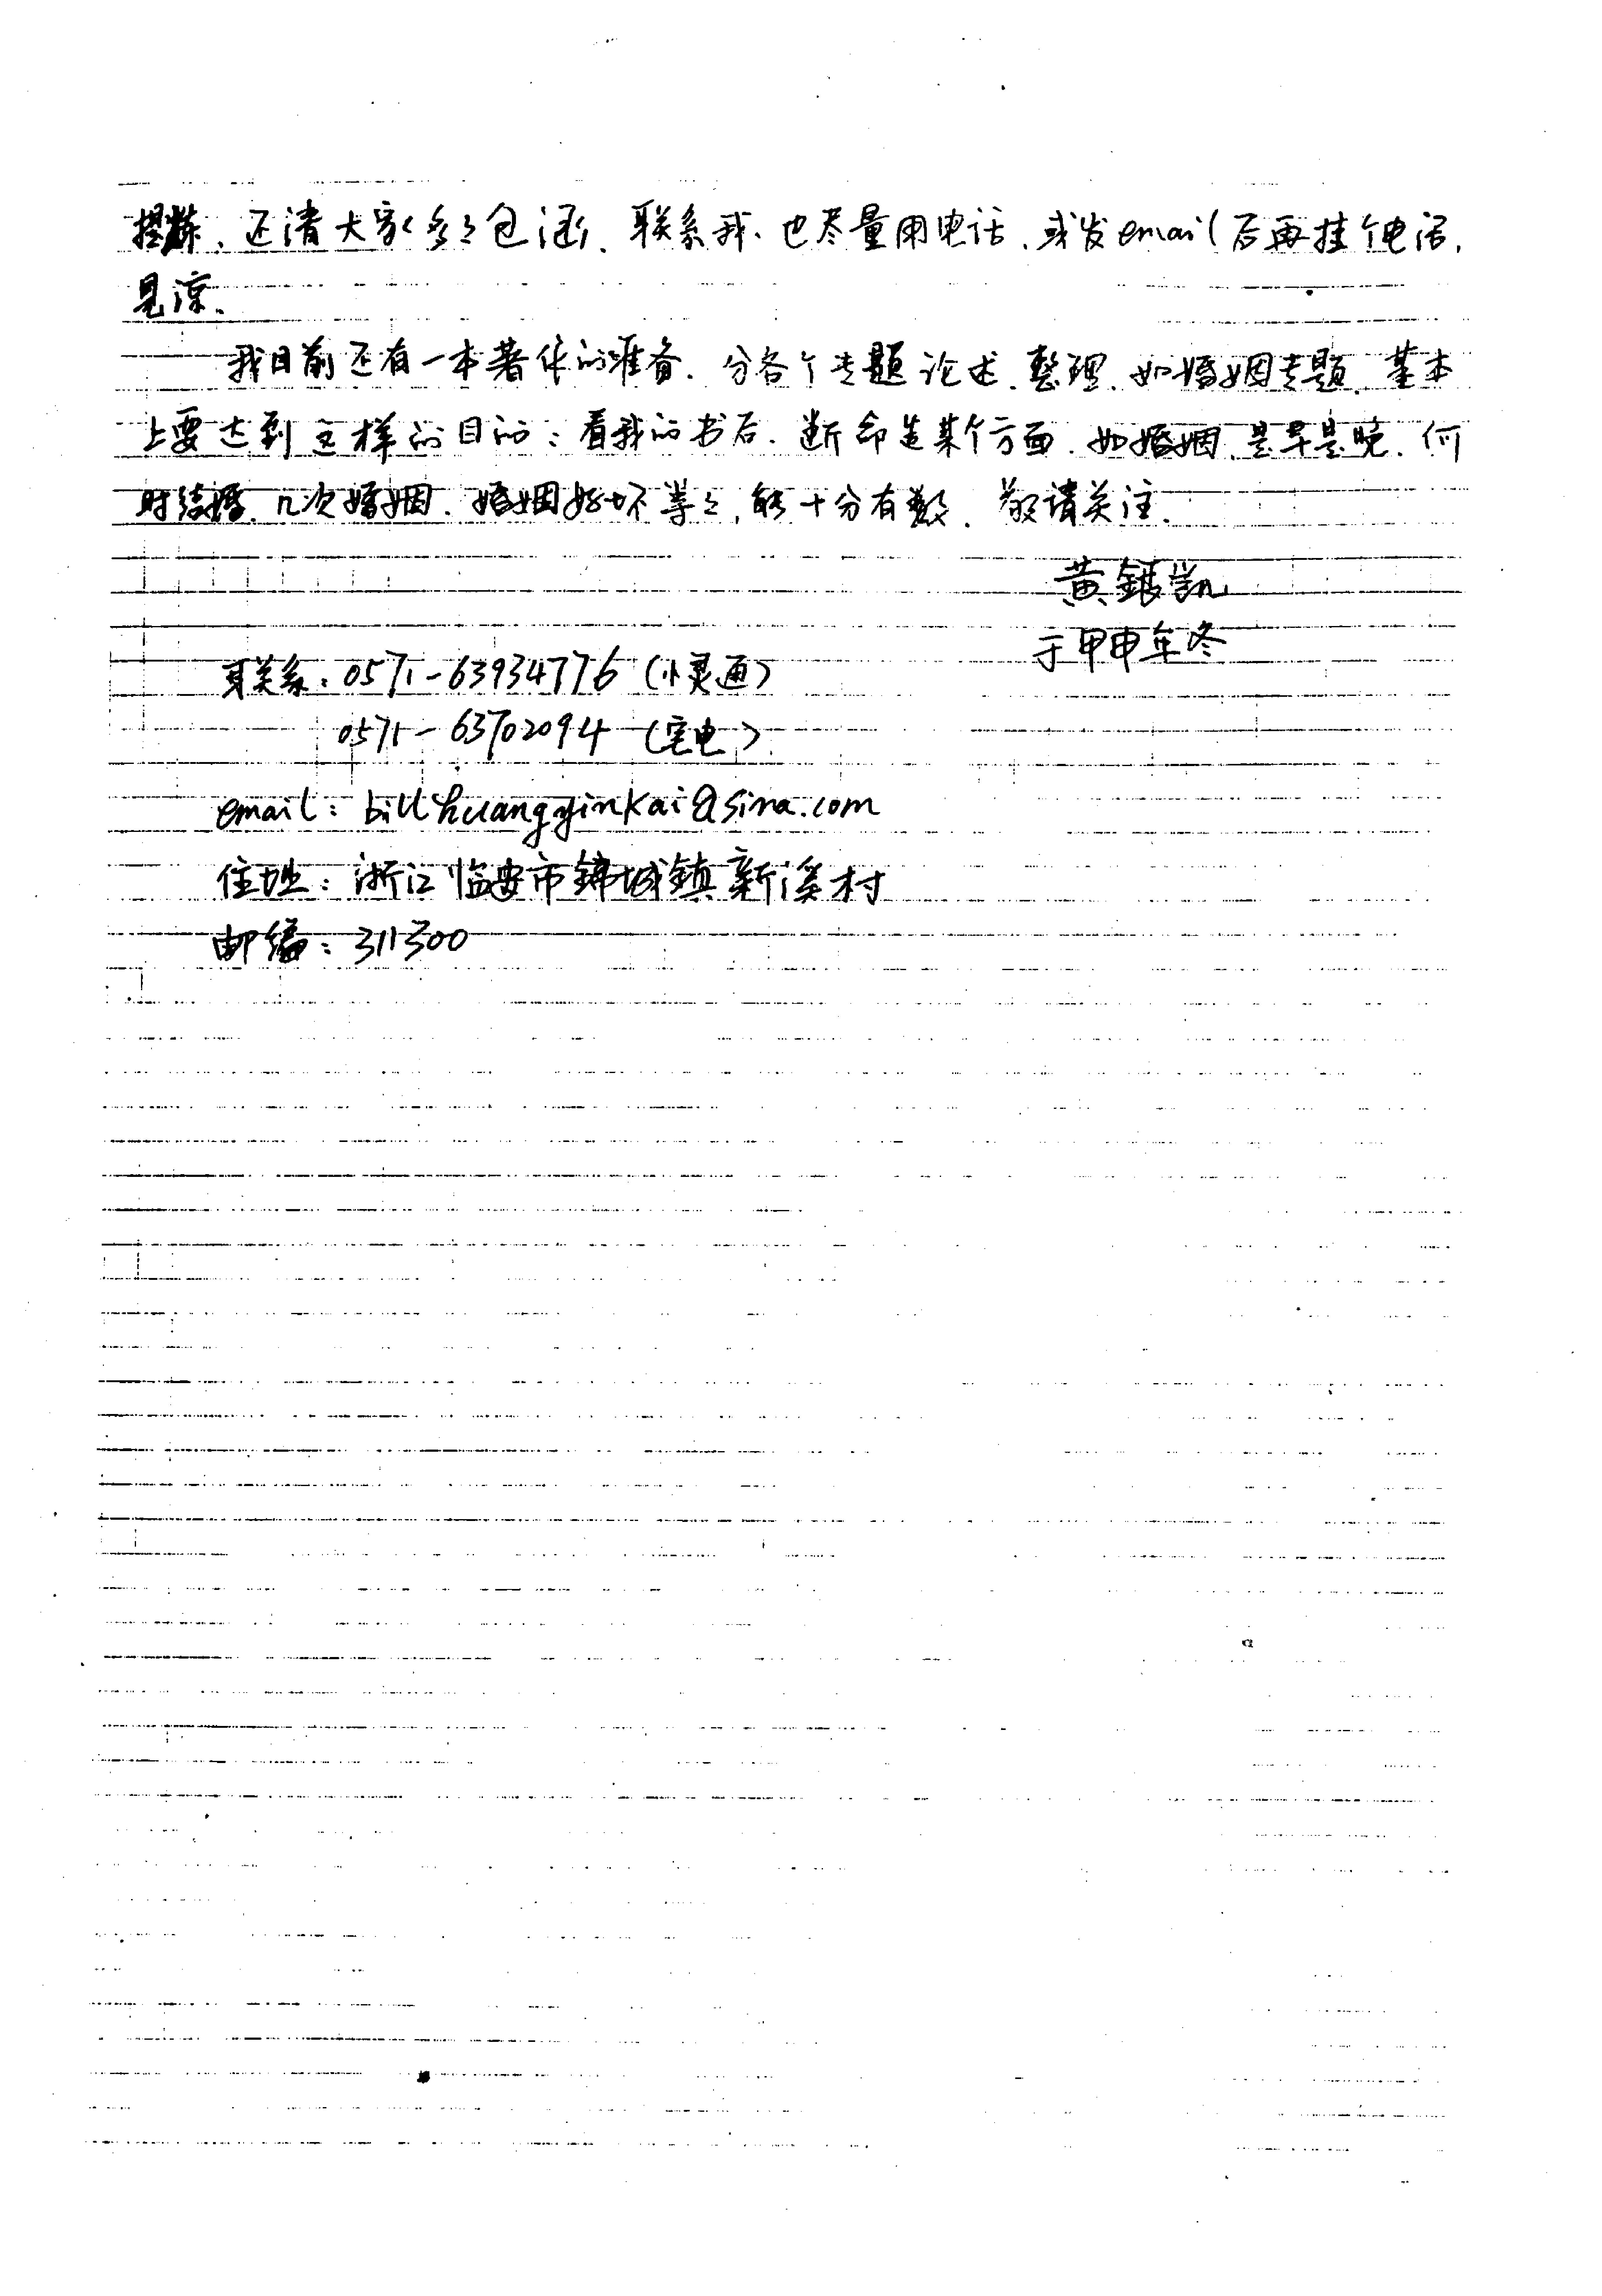 提炼、还请大家多多包涵、联系我、也尽量用电话、或发email后再挂个电话,
见谅、
我目前还有一本著作的准备、分各个专题论述、整理、如婚姻专题、基本
上要达到这样的目的：看我的书后、断命造某个方面、如婚姻、是早是晚、何
时结婚、几次婚姻、婚姻好坏等等,能十分有数、敬请关注、
黄銀凯
于甲申年冬
联系：0571-63934776（小灵通）
0571-63702094（宅电）
email：billhuangyinkai@sina.com
住址：浙江临安市錦城鎮新溪村
邮编：311300